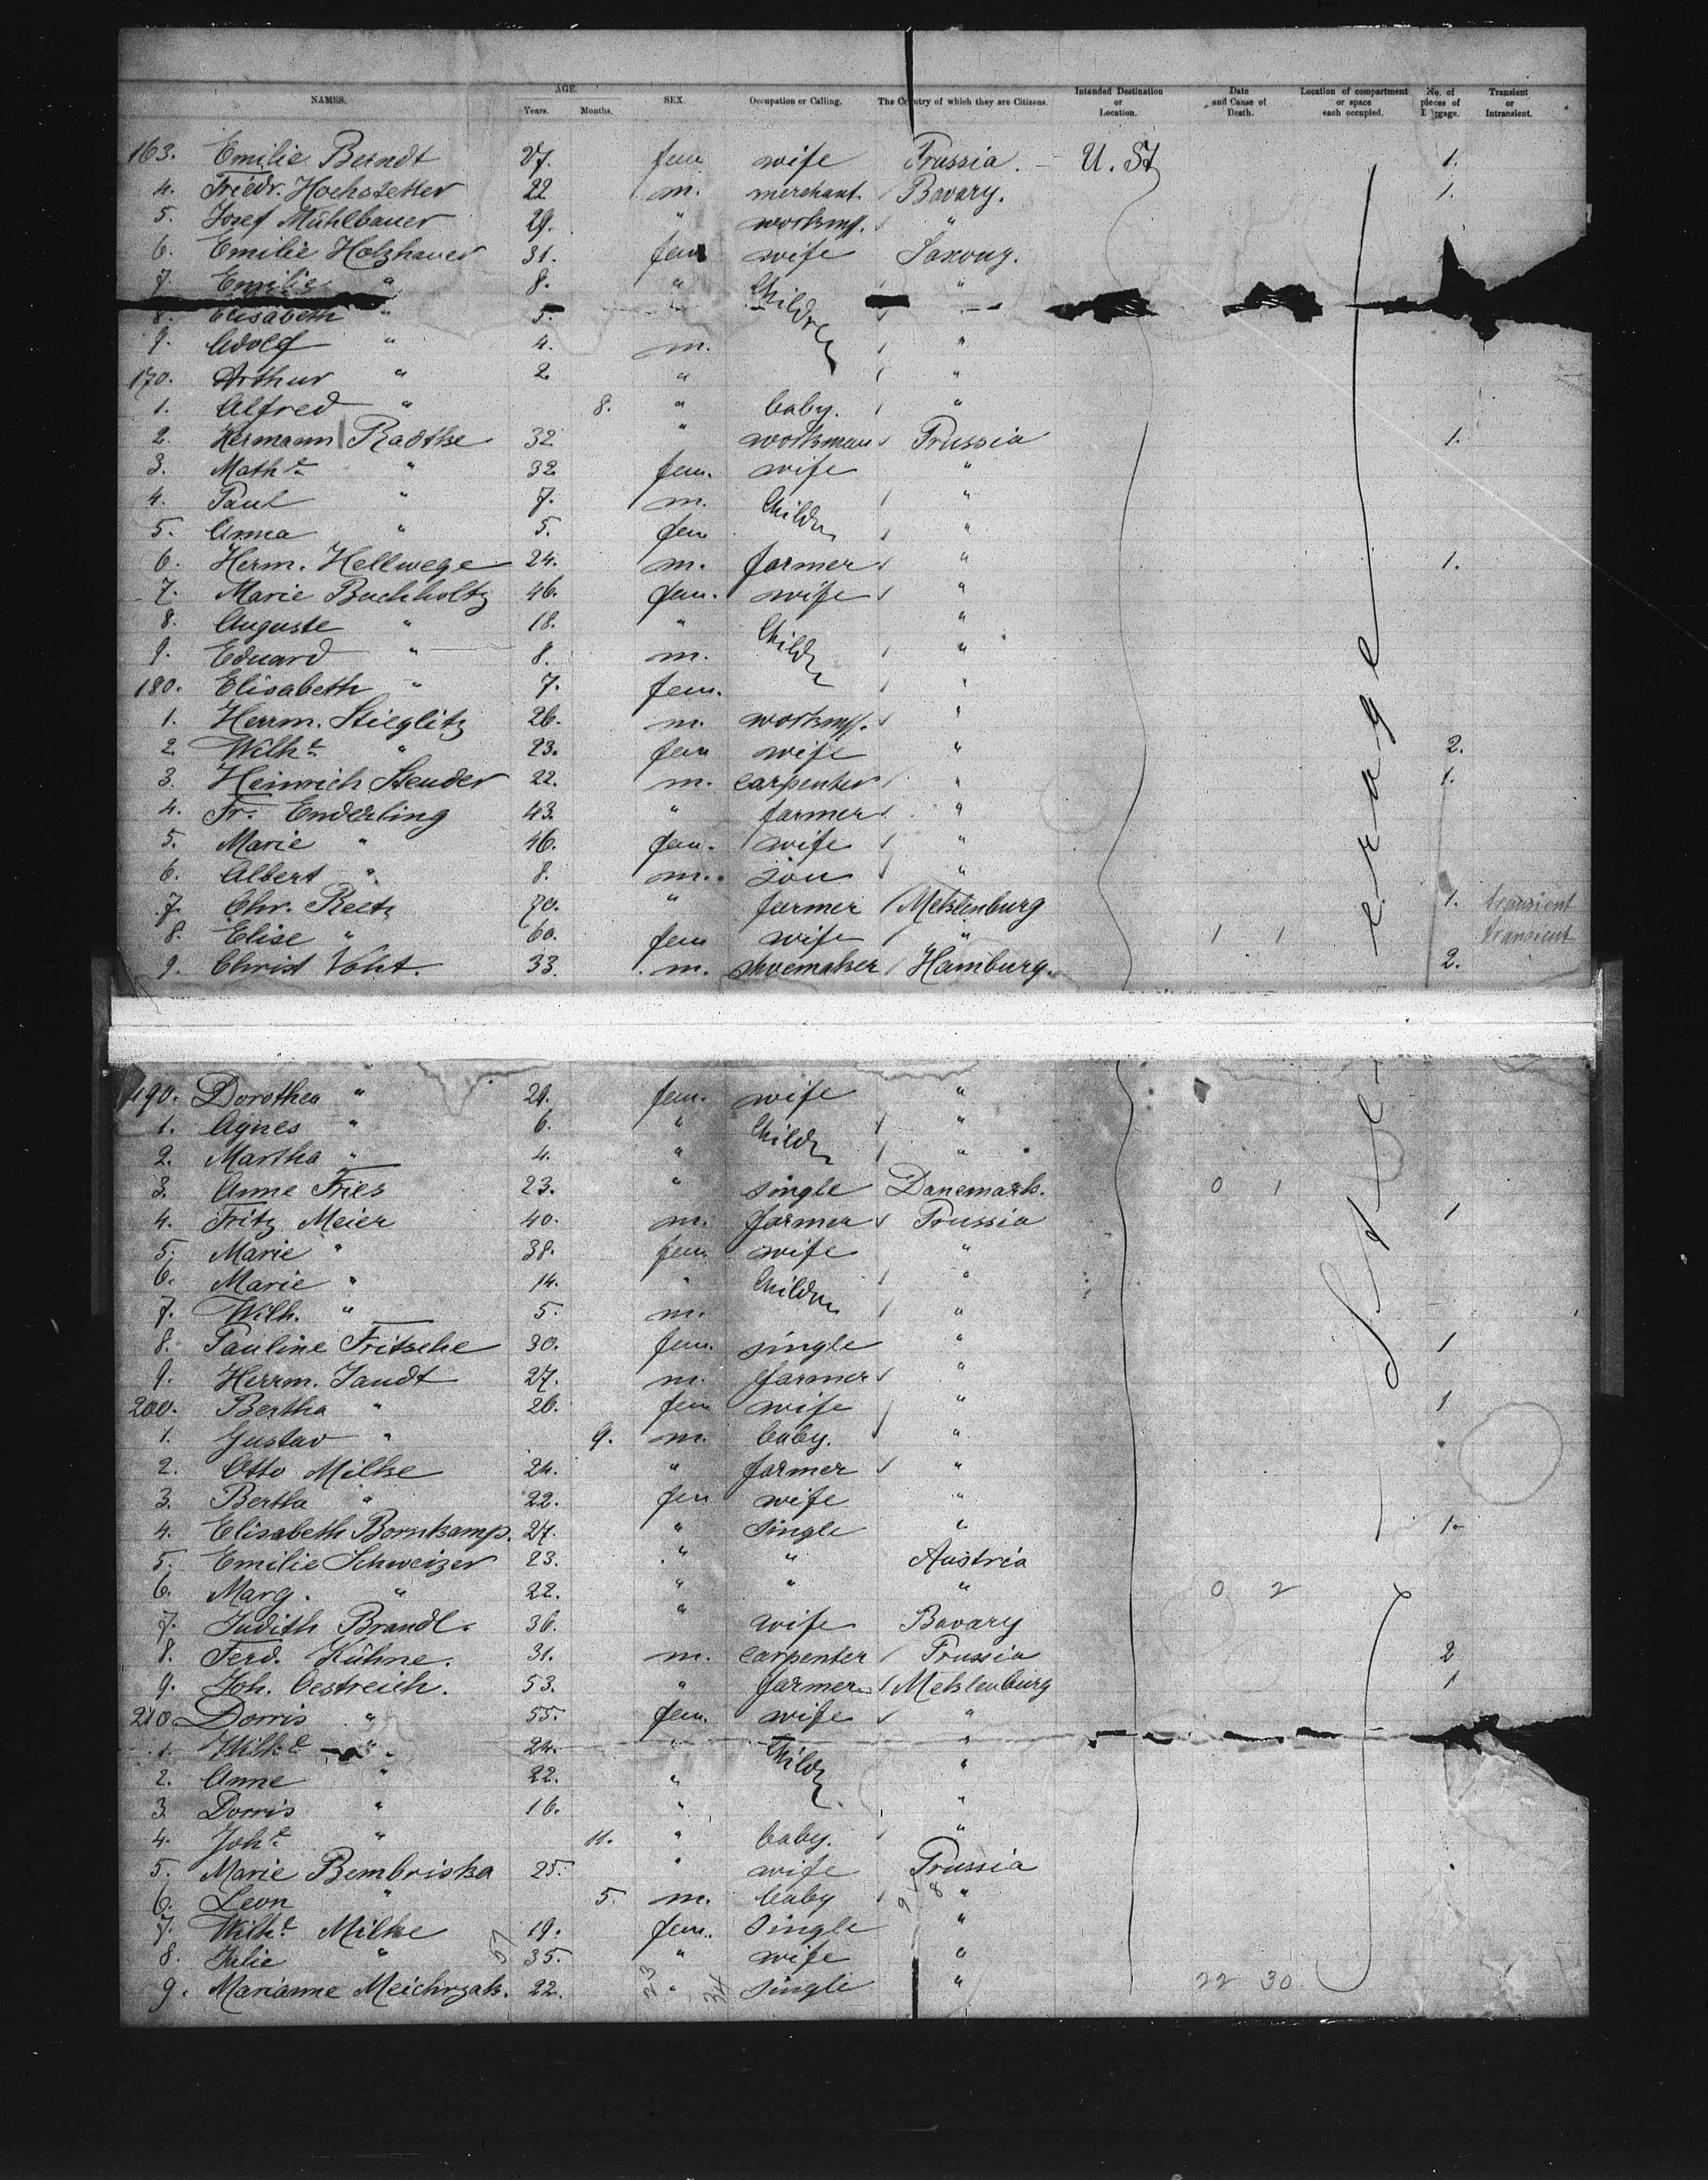 NAMES. AGE. Years. Months. SEX. Occupation or Calling. The Country of which they are Citizens. Intended Destination or Location. Date and Cause of Death. Location of compartment or space each occupied. No. of pieces of Baggage. Transient or Intransient.
163. Emilie Berndt 27. fem wife Prussia. U. St 1.
4. Friedr. Hochstetter 22 m. merchant. Bavary. 1.
5. Josef Mühlbauer 29. " "
6. Emilie Holzhauer 31. fem wife Saxony.
7. Emilie " 8. " Children "
8. Elisabeth " 5.
9. Adolf " 4. m. "
170. Arthur " 2. " "
1. Alfred " 8. " baby. "
2. Hermann Radtke 32 " workman Prussia 1.
3. Mathe " 32. fem. wife "
4. Paul " 7. m. Childr "
5. Anna " 5. fem "
6. Herm. Hellwege 24. m. farmer " 1.
7. Marie Buchholtz 46. fem. wife "
8. Auguste " 18. " Childr "
9. Eduard " 8. m. "
180. Elisabeth " 7. fem. "
1. Herrm. Stieglitz 26. m. "
2. Wilhe " 23. fem wife " 2.
3. Heinrich Steuder 22. m. carpenter " 1.
4. Fr. Enderling 43. " farmer "
5. Marie " 46. fem. wife "
6. Albert " 8. m. son "
7. Chr. Reetz 70. " farmer Meklenburg 1. transient
8. Elise " 60. fem wife " 1 1 transient
9. Christ Voht. 33. m. shoemaker Hamburg. 2.
190. Dorothea " 29. fem. wife "
1. Agnes " 6. " Childr "
2. Martha " 4. " "
3. Anne Fries 23. " single Danemark. 0 1
4. Fritz Meier 40. m. farmer Prussia 1
5. Marie " 38. fem wife "
6. Marie " 14. " Children "
7. Wilh. " 5. m. "
8. Pauline Fritsche 30. fem. single " 1
9. Herrm. Jandt 27. m. farmer "
200. Bertha " 26. fem wife " 1
1. Gustav " 9. m. baby. "
2. Otto Milke 24. " farmer "
3. Bertha " 22. fem wife "
4. Elisabeth Bornkamp. 27. " single " 1.
5. Emilie Schweizer 23. " " Austria
6. Marg. " 22. " " " 0 2
7. Judith Brandl. 36. " wife Bavary
8. Ferd. Kühne. 31. m. carpenter Prussia 2
9. Joh. Oestreich. 53. " farmer Meklenburg 1
210 Dorris " 55. fem. wife "
1. Wilhe " 24. " Childr "
2. Anne " 22. " "
3. Dorris " 16. " "
4. Johe " 11. " baby. "
5. Marie Bembriska 25. " wife Prussia
6. Leon " 5. m. baby "
7. Wilhe Milke 19. fem. single "
8. Julie " 35. " wife "
9. Marianne Meichrzak. 22. " single " 22 30
57 23 34
Steerage